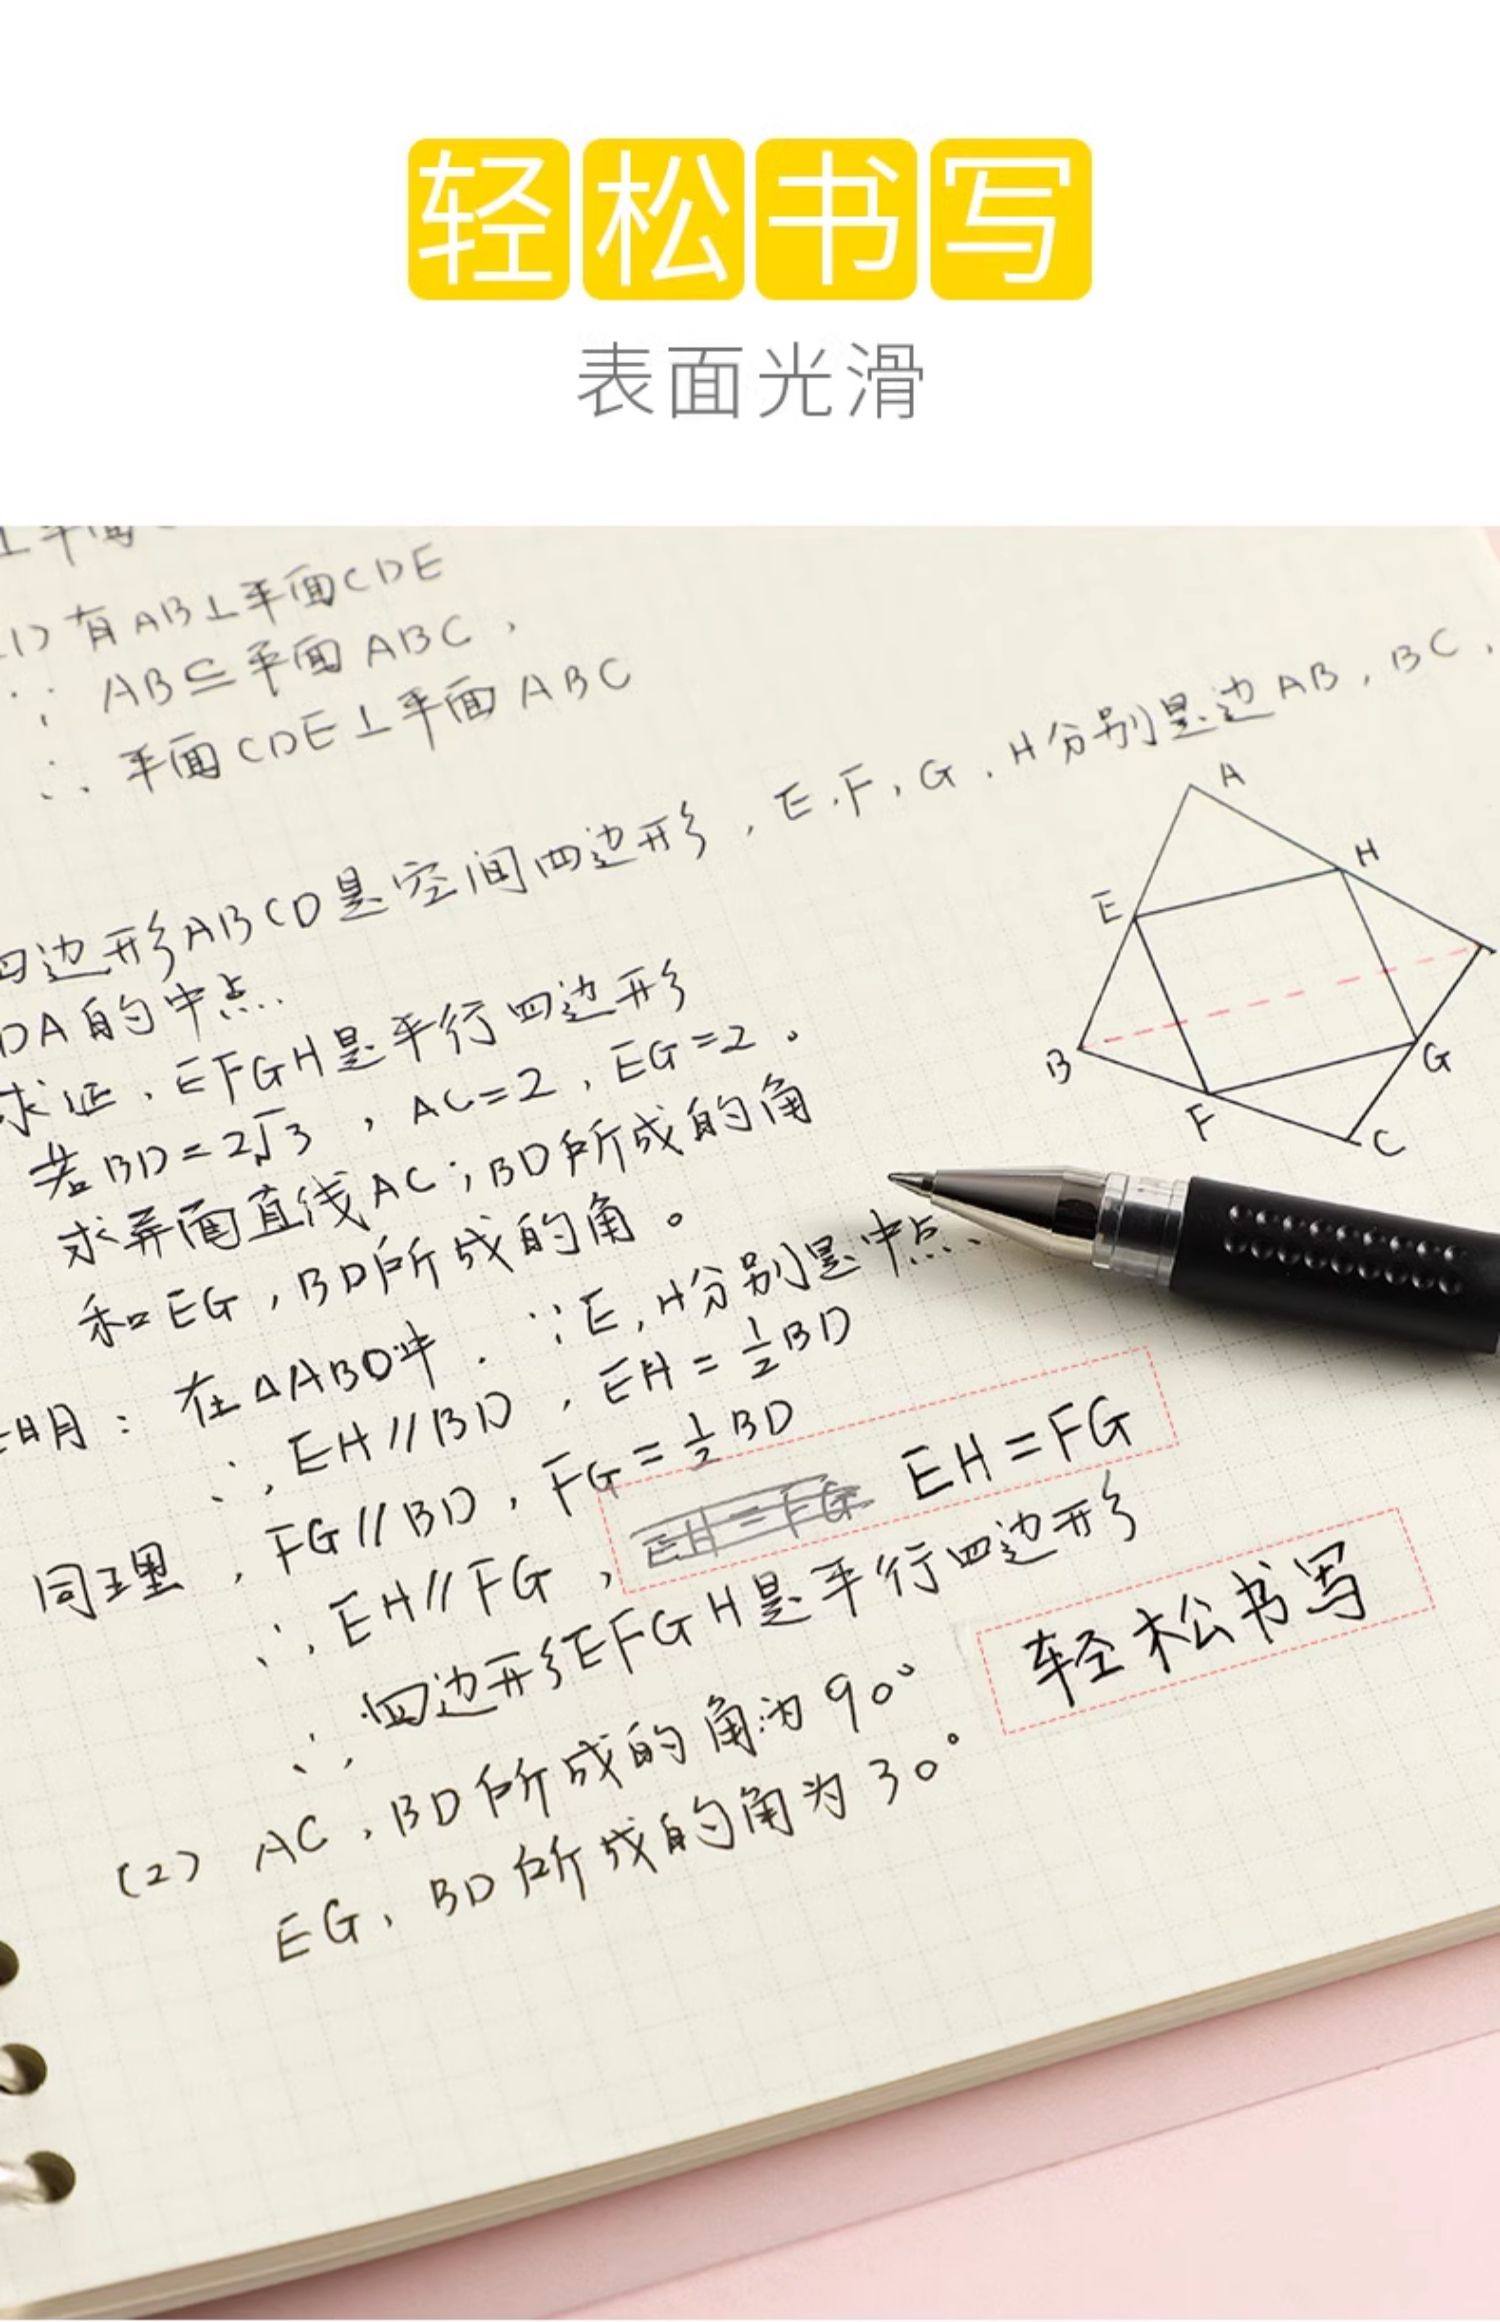 轻松书写
表面光滑
⊥平面
(1)有AB⊥平面CDE
∵ AB⊆平面ABC，
∴ 平面CDE⊥平面ABC
四边形ABCD是空间四边形，E，F，G，H分别是边AB，BC，
DA的中点.
求证，EFGH是平行四边形
若BD=2√3，AC=2，EG=2。
求异面直线AC；BD所成的角
和EG，BD所成的角。
明：在△ABD中．∵E，H分别是中点、
∴EH//BD，EH=½BD
同理，FG//BD，FG=½BD
∴EH//FG，EH=FG EH=FG
∴四边形EFGH是平行四边形
轻松书写
(2) AC，BD所成的角为90°
EG，BD所成的角为30°
A
H
E
B
G
F
C